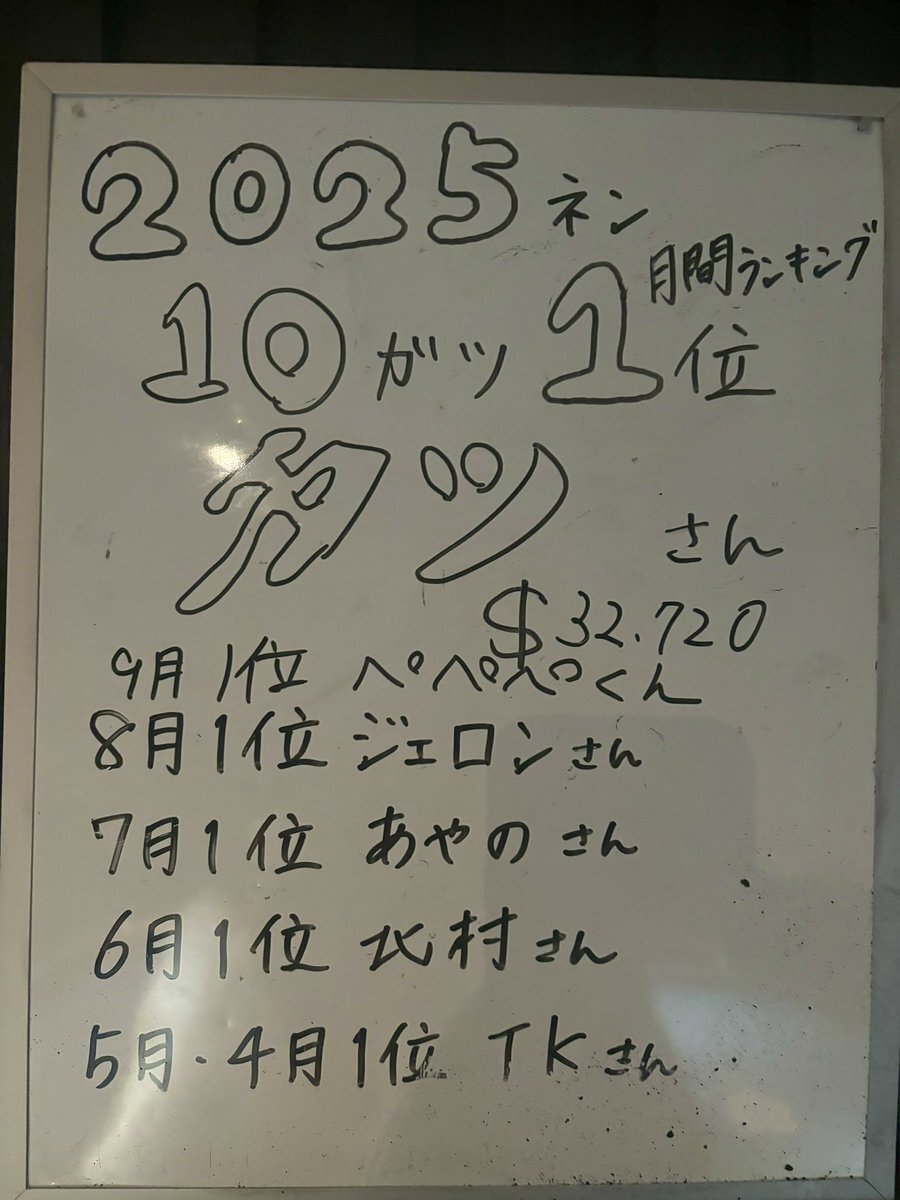 2025ネン
月間ランキング
10ガツ1位
カツ さん
$32.720
9月1位 ペペペくん
8月1位 ジェロンさん
7月1位 あやのさん
6月1位 北村さん
5月・4月1位 TKさん